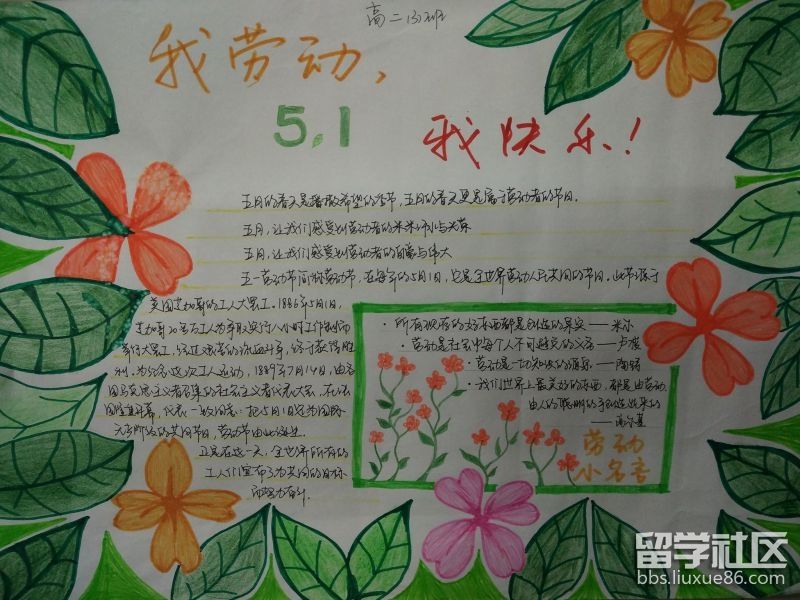 高二(3)班
我劳动，
5.1
我快乐！
五月的春天是播散希望的季节，五月的春天更是属于劳动者的节日。
五月，让我们感受到劳动者的
五月，让我们感受到劳动者的自豪与伟大
五一劳动节简称劳动节，在每年的5月1日，它是全世界劳动人民共同的节日。此节源于
美国芝加哥的工人大罢工。1886年5月1日，
芝加哥20多万工人为争取实行八小时工作制而
举行大罢工，经过艰苦的流血斗争，终于获得胜
利。为纪念这次工人运动，1889年7月14日，由各
国马克思主义者召集的社会主义者代表大会，在法
国隆重开幕，代表一致同意：把5月1日定为国际
无产阶级的共同节日，劳动节由此诞生。
正是在这一天，全世界所有的
工人们宣布了为共同的目标
而努力奋斗。
· 所有现存的好东西都是创造的果实——米尔
· 劳动是社会中每个人不可避免的义务——卢梭
· 劳动是一切知识的源泉——陶铸
· 我们世界上最美好的东西，都是由劳动、
由人的聪明的手创造出来的
——高尔基
劳动
小名言
留学社区
bbs.liuxue86.com